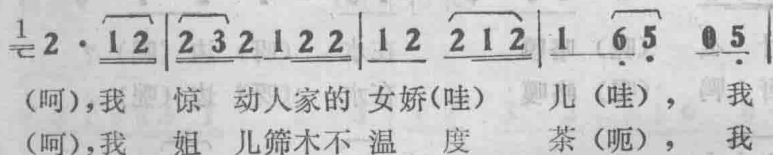 1 2 · 1 2 | 2 3 2 1 2 2 | 1 2 2 1 2 | 1 6 5 0 5 |
(呵),我 惊 动人家的 女娇(哇) 儿(哇), 我
(呵),我 姐 儿筛木不 温 度 茶(呃), 我